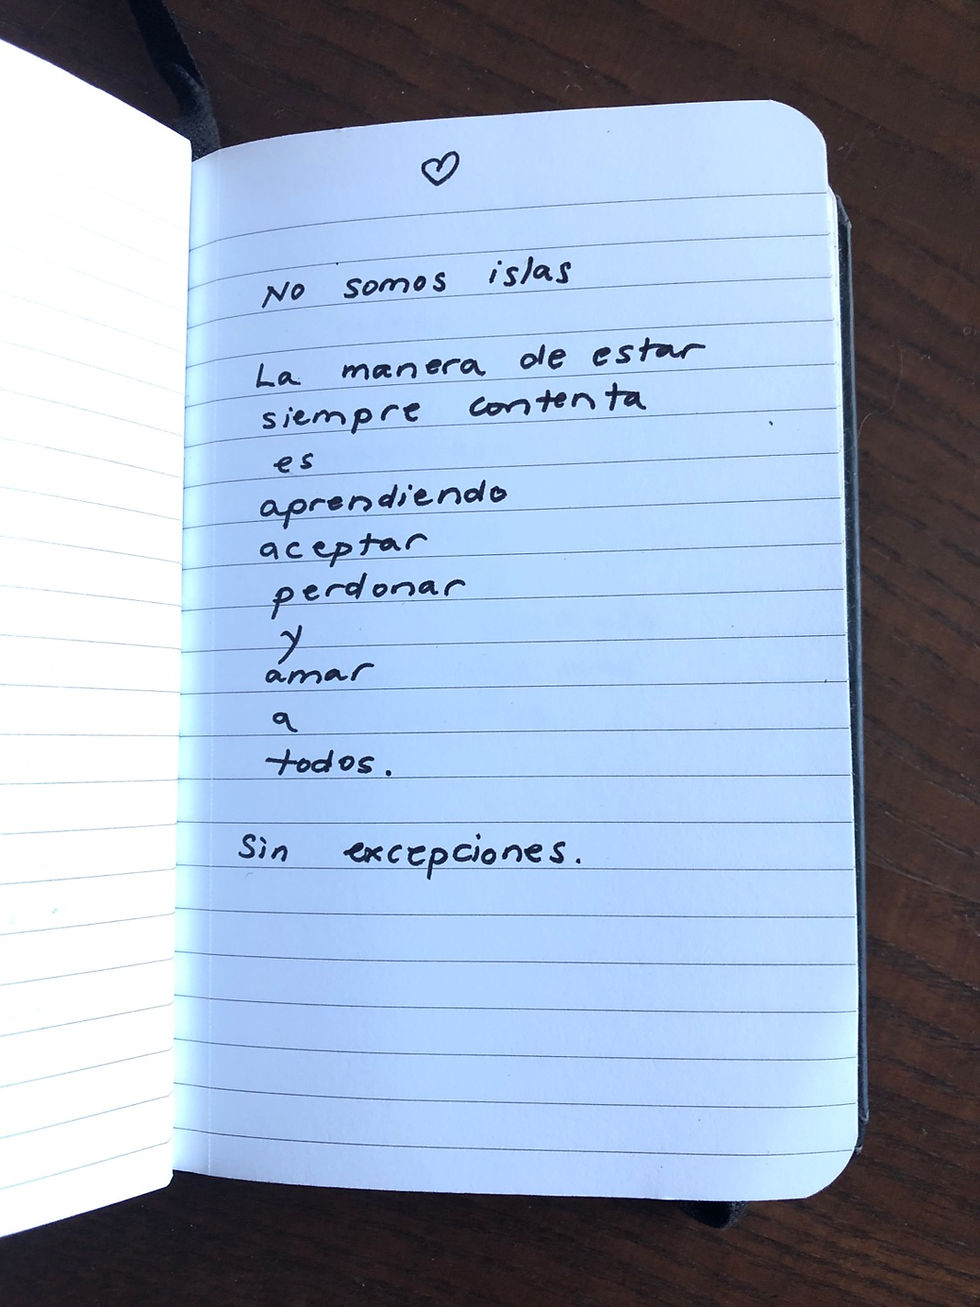 No somos islas
La manera de estar
siempre contenta
es
aprendiendo
aceptar
perdonar
y
amar
a
todos.
Sin excepciones.